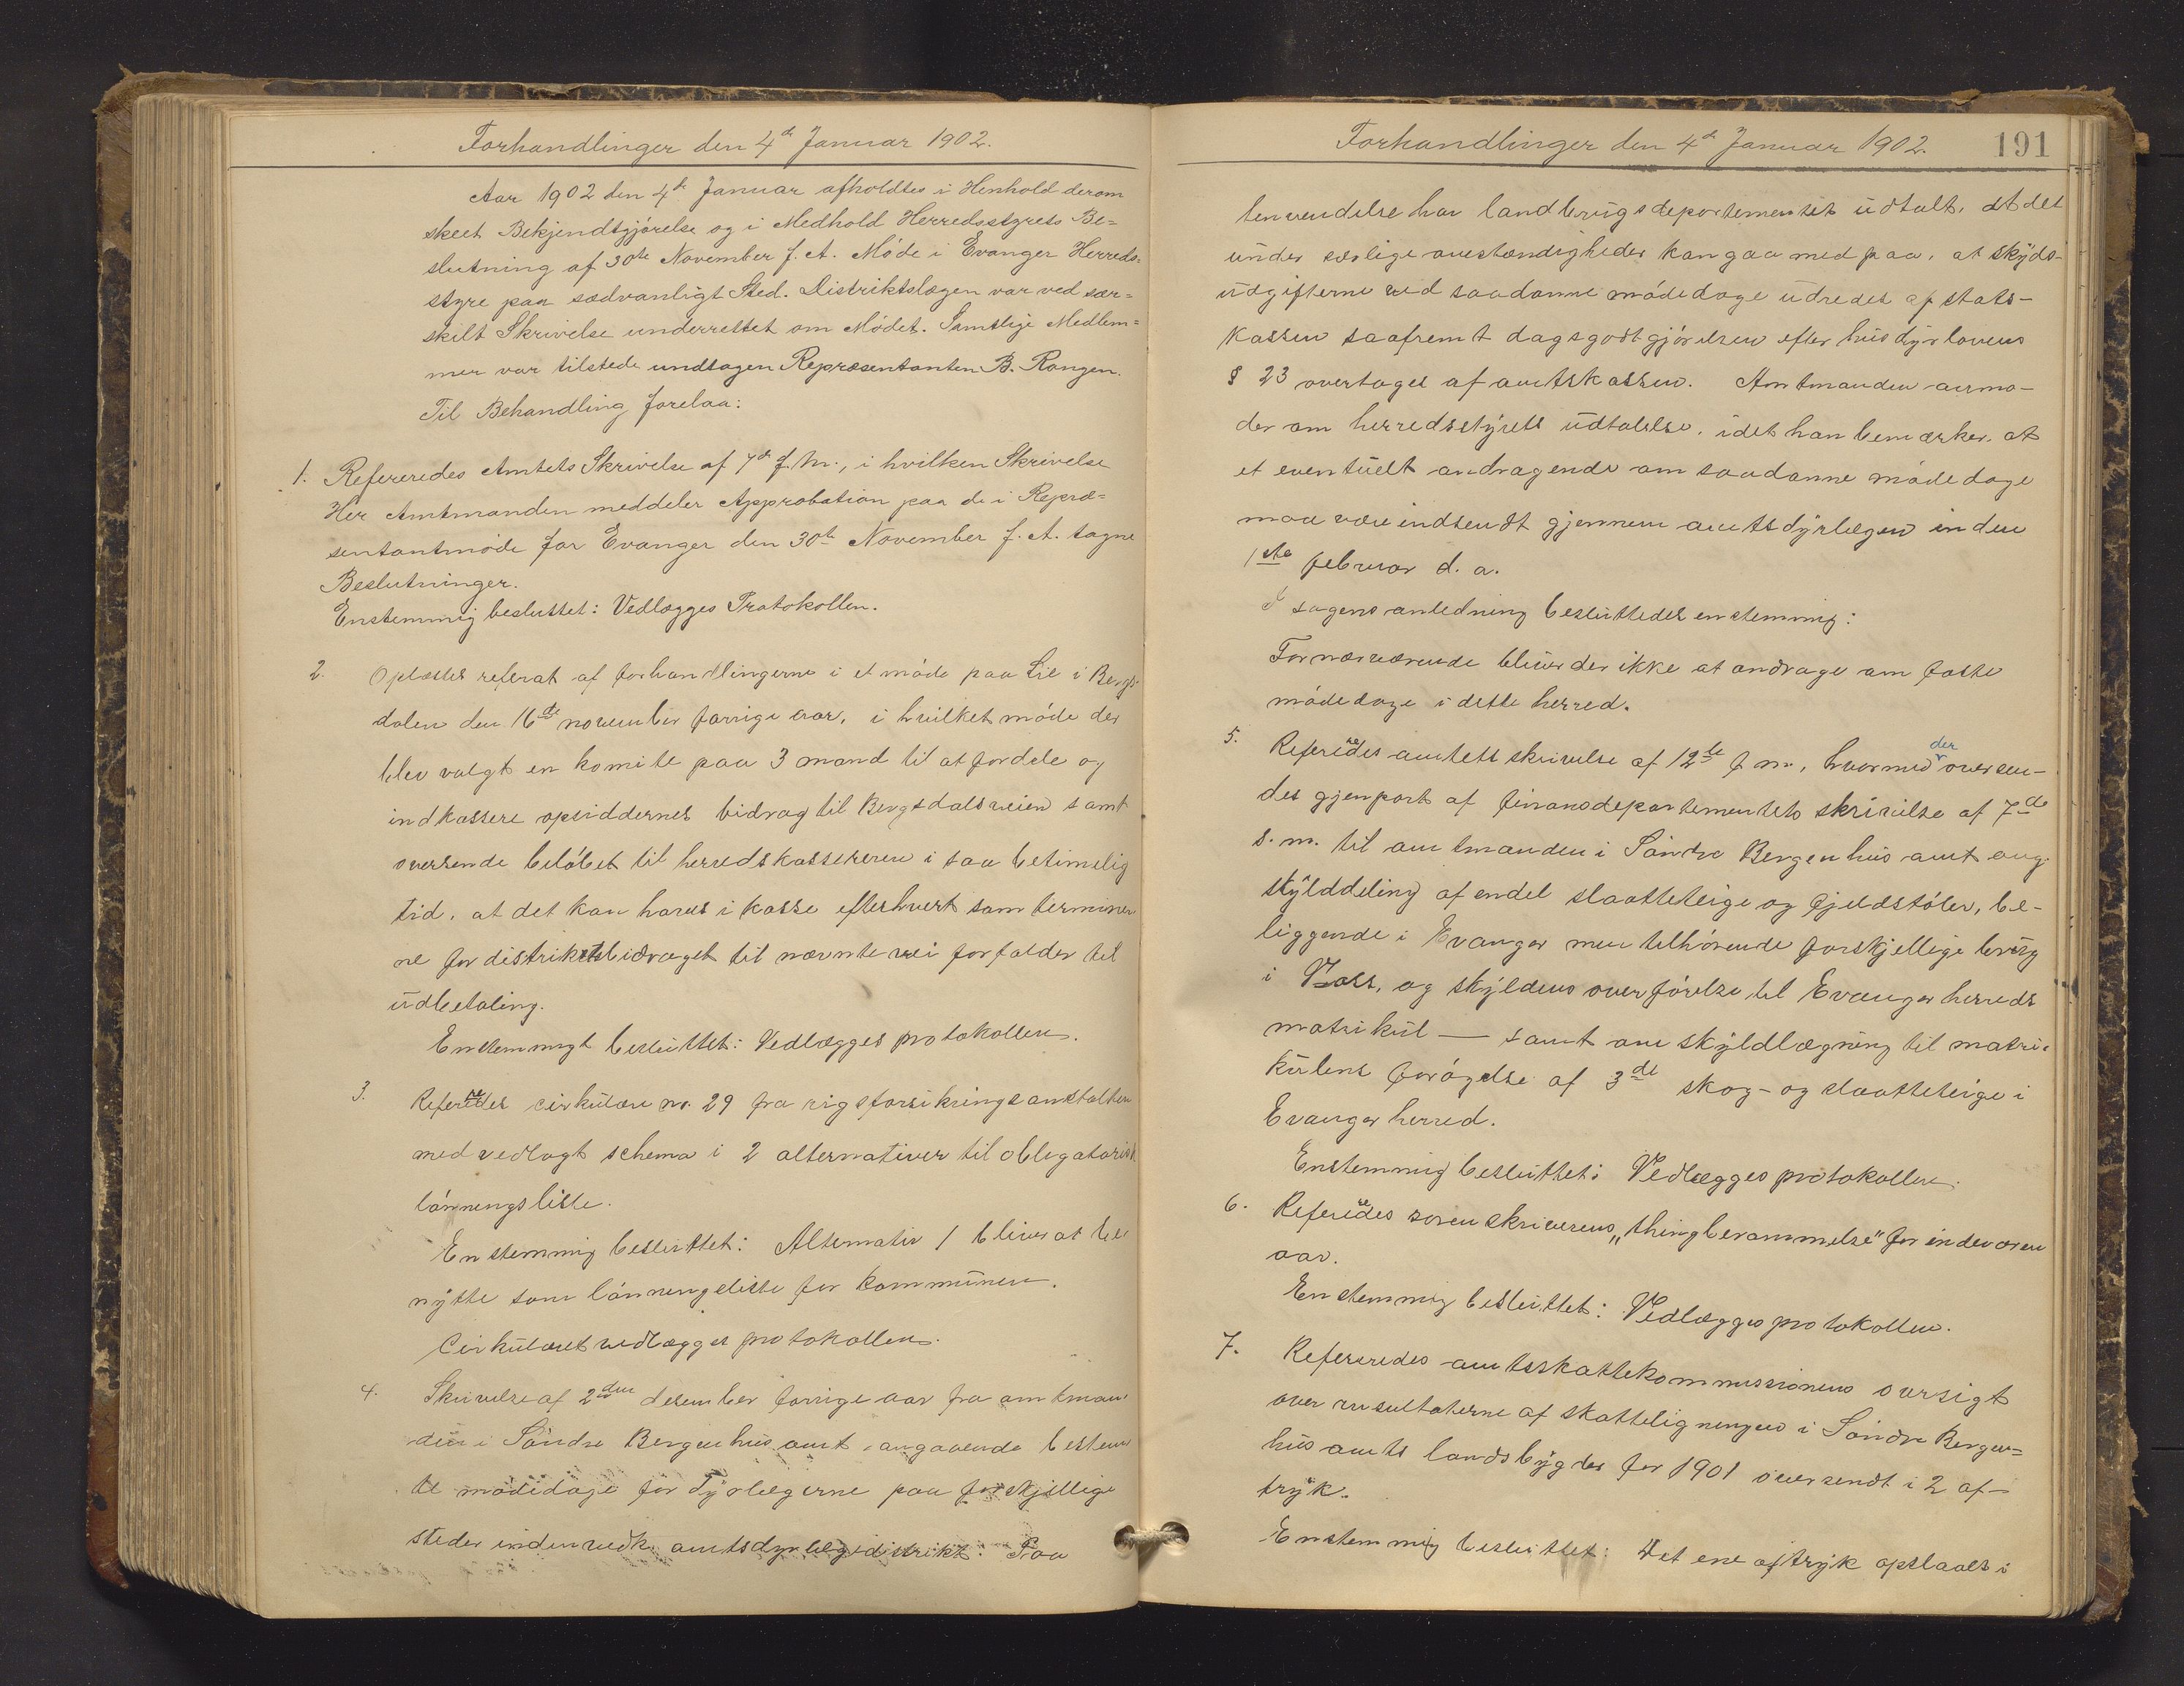 Forhandlinger den 4de Januar 1902.
Aar 1902 den 4de Januar afholdtes i Henhold derom
skeet Bekjendtgjørelse og i Medhold Herredsstyrets Be=
slutning af 30te November f. A. Møde i Evanger Herreds=
styre paa sædvanligt Sted. Distriktslægen var ved sær=
skilt Skrivelse underrettet om Mødet. Samtlige Medlem=
mer var tilstede undtagen Repræsentanten B. Rongen.
Til Behandling forelaa:
1. Refereredes Amtets Skrivelse af 7de f. m., i hvilken Skrivelse
Her Amtmanden meddeler Approbation paa de i Repræ=
sentantmøde for Evanger den 30te November f. A. tagne
Beslutninger.
Enstemmig besluttet: Vedlægges Protokollen.
2. Oplæstes referat af forhandlingerne i et møde paa Lie i Bergs-
dalen den 16de november forrige aar, i hvilket møde der
blev valgt en komite paa 3 mand til at fordele og
indkassere opsiddernes bidrag til Bergsdalsveien samt
oversende beløbet til herredskassereren i saa betimelig
tid, at det kan haves i kasse efterhvert som terminer
ne for distriktsbidraget til nævnte vei forfalder til
udbetaling.
Enstemmigt besluttet: Vedlægges protokollen.
3. Refereredes cirkulære no. 29 fra rigsforsikringsanstalten
med vedlagt schema i 2 alternativer til obligatorisk
lønningsliste.
Enstemmig besluttet: Alternativ 1 bliver at be
nytte som lønningsliste for kommunen.
Cirkulæret vedlægges protokollen.
4. Skrivelse af 2den desember forrige aar fra amtman
den i Søndre Bergenhus amt angaaende bestem
te mødedage for dyrlægerne paa forskjellige
steder inden vedk. amtsdyrlægedistrikt. Paa
Forhandlinger den 4de Januar 1902. 191
henvendelse har landbrugsdepartementet udtalt, at det
under særlige omstændigheder kan gaa med paa, at skyds-
udgifterne ved saadanne mødedage udredes af stats-
kassen saafremt dagsgodtgjørelsen efter husdyrlovens
§ 23 overtages af amtskassen. Amtmanden anmo-
der om herredsstyrets udtalelse, idet han bemærker, at
et eventuelt andragende om saadanne mødedage
maa være indsendt gjennem amtsdyrlægen inden
1ste februar d. a.
I sagens anledning besluttedes enstemmig:
For nærværende bliver der ikke at andrage om faste
mødedage i dette herred.
5. Refereredes amtets skrivelse af 12te f. m., hvormed der oversen-
des gjenpart af finansdepartementets skrivelse af 7de
s. m. til amtmanden i Søndre Bergenhus amt ang.
skylddeling af endel slaatteteige og fjeldstøler, be-
liggende i Evanger men tilhørende forskjellige brug
i Voss, og skyldens overførelse til Evanger herreds
matrikul — samt om skyldlægning til matri-
kulens forøgelse af 3de skog- og slaatteteige i
Evanger herred.
Enstemmig besluttet: Vedlægges protokollen.
6. Refereredes sorenskriverens „thingberammelse" for indeværen
aar.
Enstemmig besluttet: Vedlægges protokollen.
7. Refereredes amtsskattekommissionens oversigt
over resultaterne af skatteligningen i Søndre Bergen=
hus amts landsbygder for 1901 oversendt i 2 af-
tryk.
Enstemmig besluttet: Det ene aftryk opslaaes i